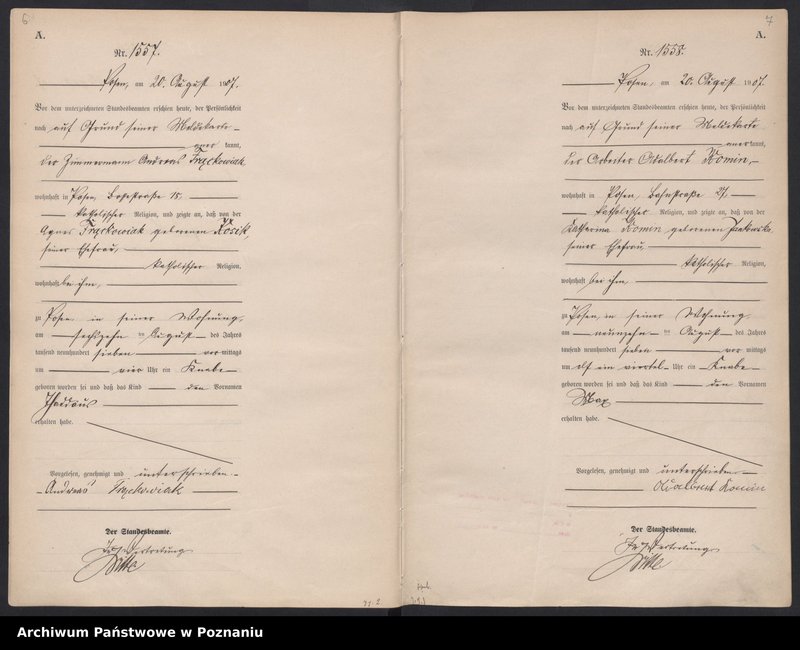 6
A.
Nr. 1557.
Posen, am 20. August 1907.
Vor dem unterzeichneten Standesbeamten erschien heute, der Persönlichkeit
nach auf Grund seiner Meldekarte
aner kannt,
der Zimmermann Andreas Frąckowiak
wohnhaft in Posen, 15.
katholischer Religion, und zeigte an, daß von der
Agnes Frąckowiak geborenen Kosik,
seiner Ehefrau,
katholischer Religion,
wohnhaft bei ihm,
zu Posen in seiner Wohnung,
am sechszehn ten August des Jahres
tausend neunhundert sieben vor mittags
um vier Uhr ein Knabe
geboren worden sei und daß das Kind den Vornamen
Thaddäus
erhalten habe.
Vorgelesen, genehmigt und unterschrieben.
Andreas Frąckowiak
Der Standesbeamte.
In Vertretung
Witte
71. 2.
7
A.
Nr. 1558.
Posen, am 20. August 1907.
Vor dem unterzeichneten Standesbeamten erschien heute, der Persönlichkeit
nach auf Grund seiner Meldekarte
aner kannt,
der Arbeiter Adalbert Komin,
wohnhaft in Posen, 27
katholischer Religion, und zeigte an, daß von der
Katharina Komin geborenen
seiner Ehefrau,
katholischer Religion,
wohnhaft bei ihm,
zu Posen in seiner Wohnung,
am neunzehn ten August des Jahres
tausend neunhundert sieben vor mittags
um elf ein viertel Uhr ein Knabe
geboren worden sei und daß das Kind den Vornamen
Max
erhalten habe.
Vorgelesen, genehmigt und unterschrieben
Adalbert Komin
Der Standesbeamte.
In Vertretung
Witte
Archiwum Państwowe w Poznaniu